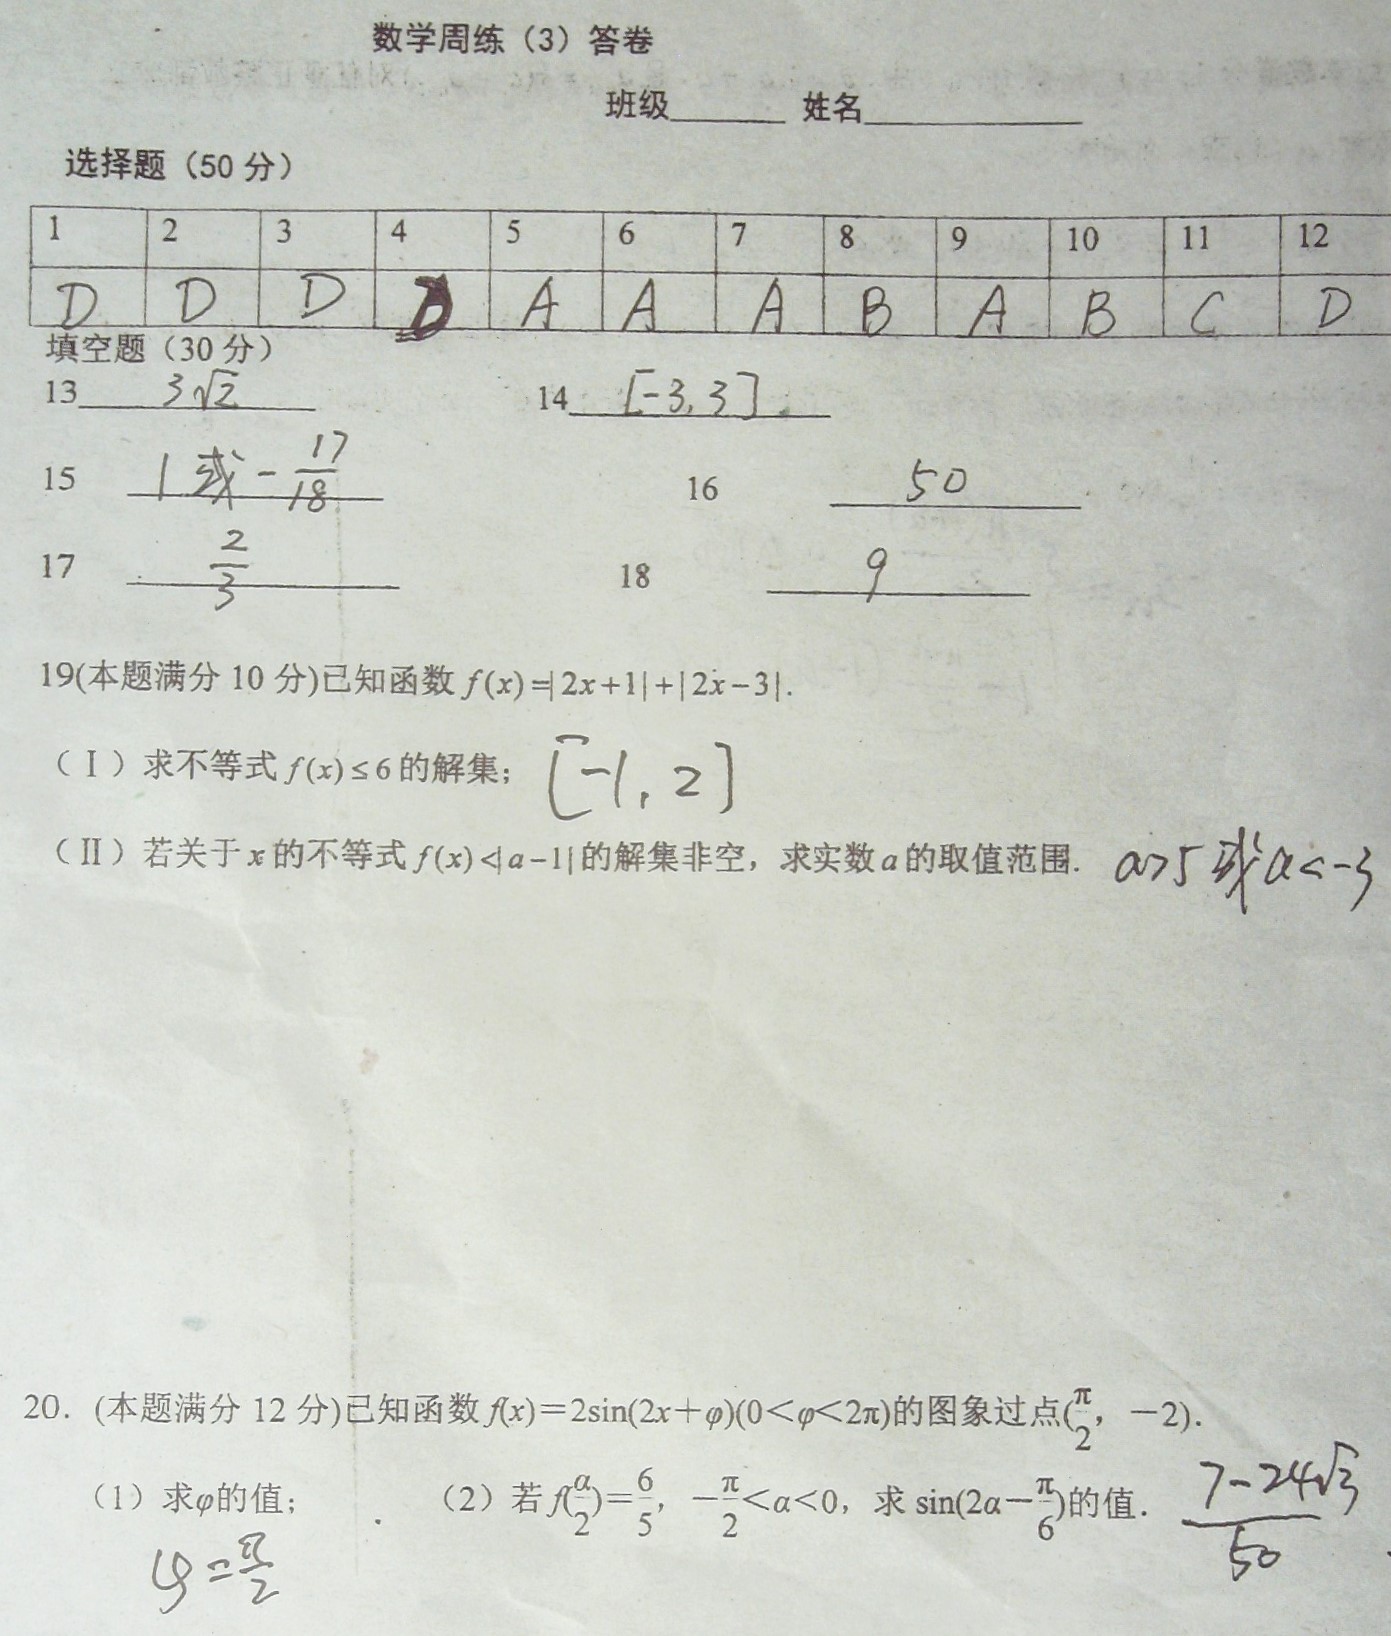 数学周练（3）答卷
班级______ 姓名____________
选择题（50 分）
1 2 3 4 5 6 7 8 9 10 11 12
D D D D A A A B A B C D
填空题（30 分）
13 3√2 14 [-3,3]
15 1或-17/18 16 50
17 2/3 18 9
19(本题满分 10 分)已知函数 f(x)=|2x+1|+|2x-3|.
（Ⅰ）求不等式 f(x)≤6 的解集； [-1, 2]
（Ⅱ）若关于 x 的不等式 f(x)<|a-1| 的解集非空，求实数 a 的取值范围. a>5或a<-3
20．(本题满分 12 分)已知函数 f(x)＝2sin(2x＋φ)(0＜φ＜2π)的图象过点(π/2，－2)．
（1）求φ的值； （2）若 f(α/2)＝6/5，－π/2＜α＜0，求 sin(2α－π/6)的值． (7-24√3)/50
φ=π/2